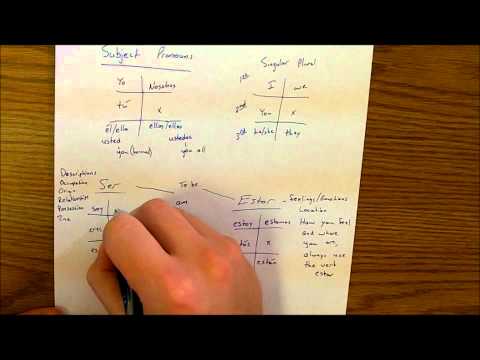 Subject Pronouns
Yo Nosotros
tú x
él/ella ellos/ellas
usted ustedes
you (formal) you all
Singular Plural
1st I we
2nd You x
3rd he/she they
Descriptions
Occupation
Origin
Relationship
Possession
Time
Ser
To be
am
soy
eres
es
Estar
estoy estamos
estás x
están
- Feelings/Emotions
Location
How you feel
and where
you are,
always use
the verb
estar